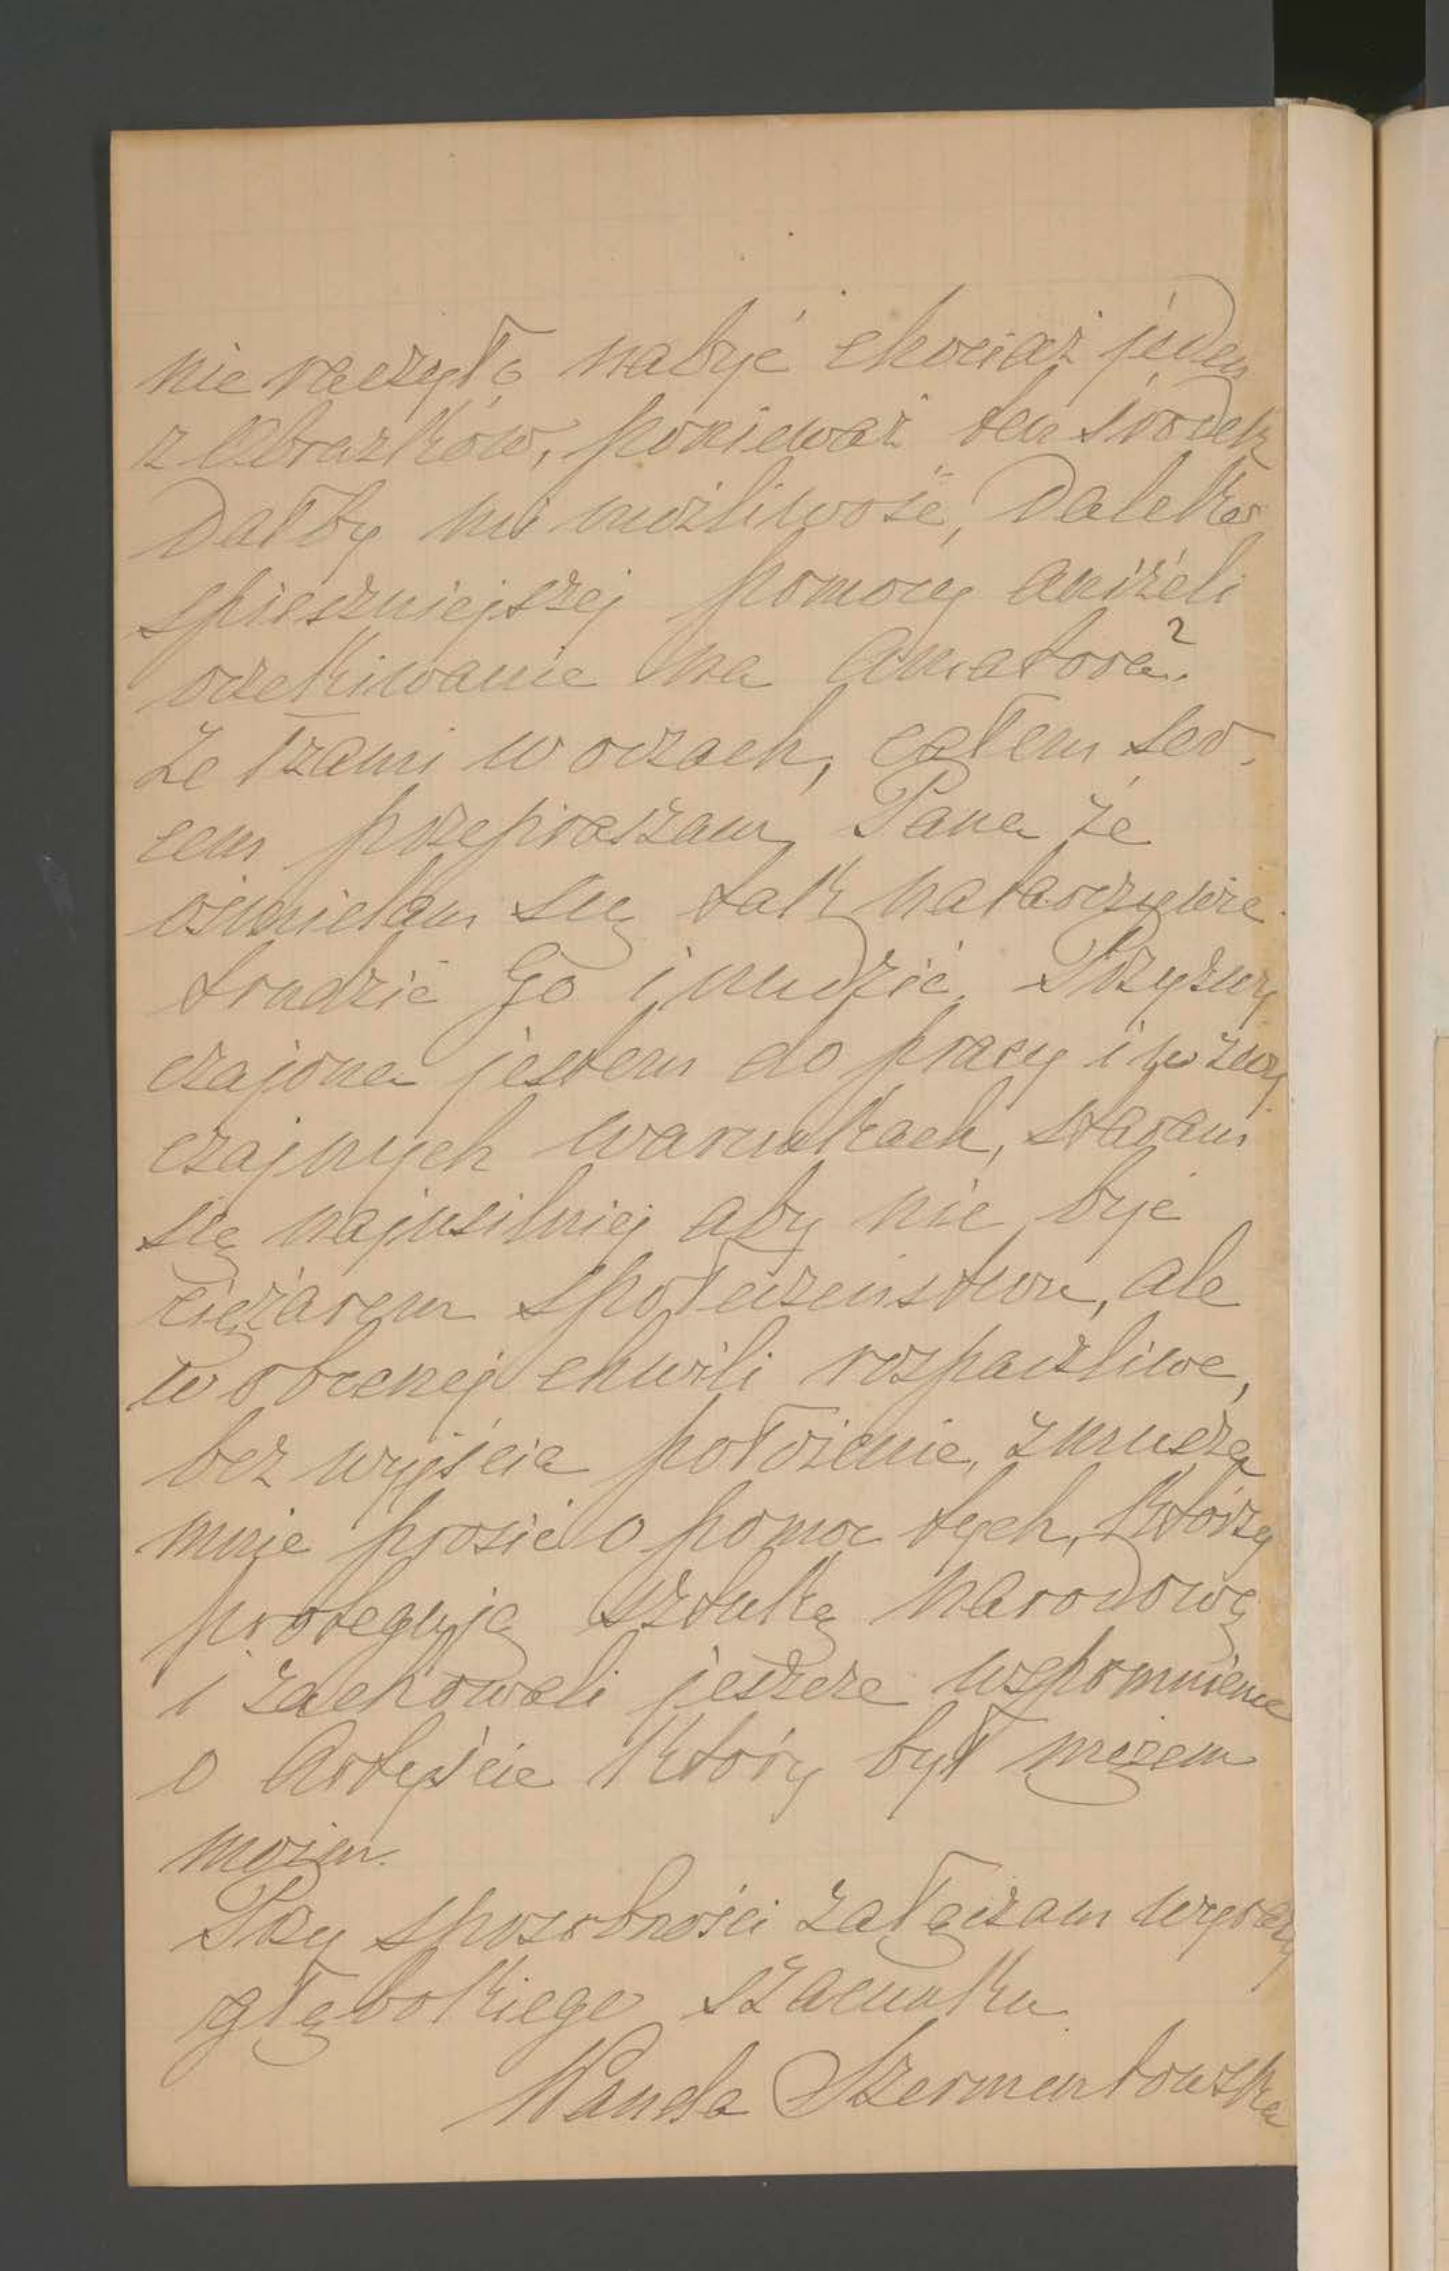 nie raczyło nabyć chociaż jeden
z Obrazków, ponieważ ten środek
Dałby mi możliwość, Daleko
spieszniejszej pomocy aniżeli
oczekiwanie na Amatora?
Ze łzami w oczach, całem ser,
cem przepraszam Pana że
ośmielam się tak natarczywie
trudzić Go i nudzić. Przyzwy
czajona jestem do pracy i w zwy
czajnych warunkach, staram
się najusilniej aby nie być
ciężarem społeczeństwu, ale
w obecnej chwili rozpaczliwe,
bez wyjścia położenie, zmusza
mnie prosić o pomoc tych, którzy
protegują sztukę narodową
i zachowali jeszcze wspomnienie
o Artyście który był mężem
moim.
Przy sposobności załączam wyrazy
głębokiego szacunku
Wanda Szermentowska